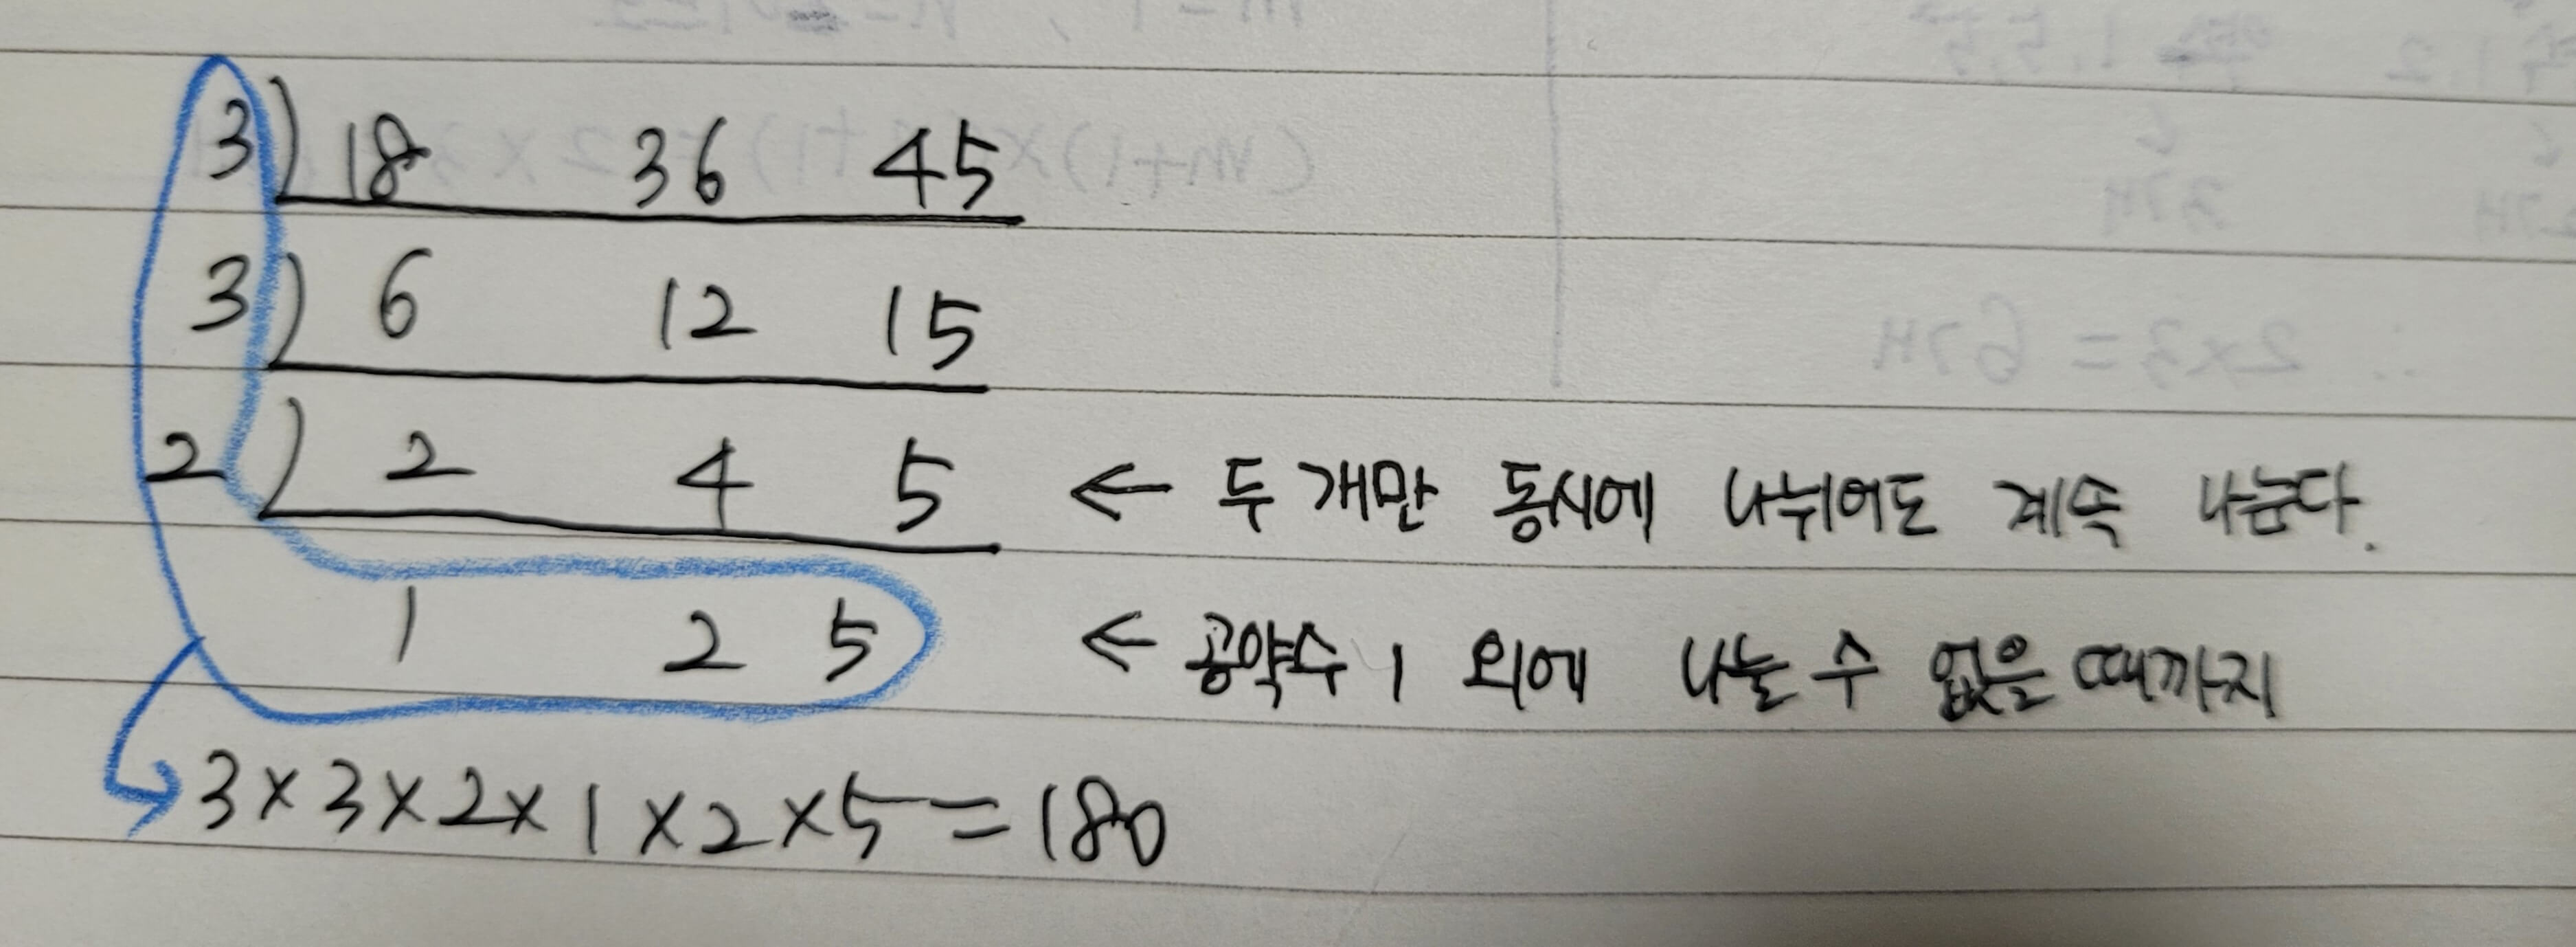 3) 18 36 45
3) 6 12 15
2) 2 4 5 ← 두 개만 동시에 나뉘어도 계속 나눈다.
1 2 5 ← 공약수 1 외에 나눌 수 없을 때까지
3×3×2×1×2×5=180